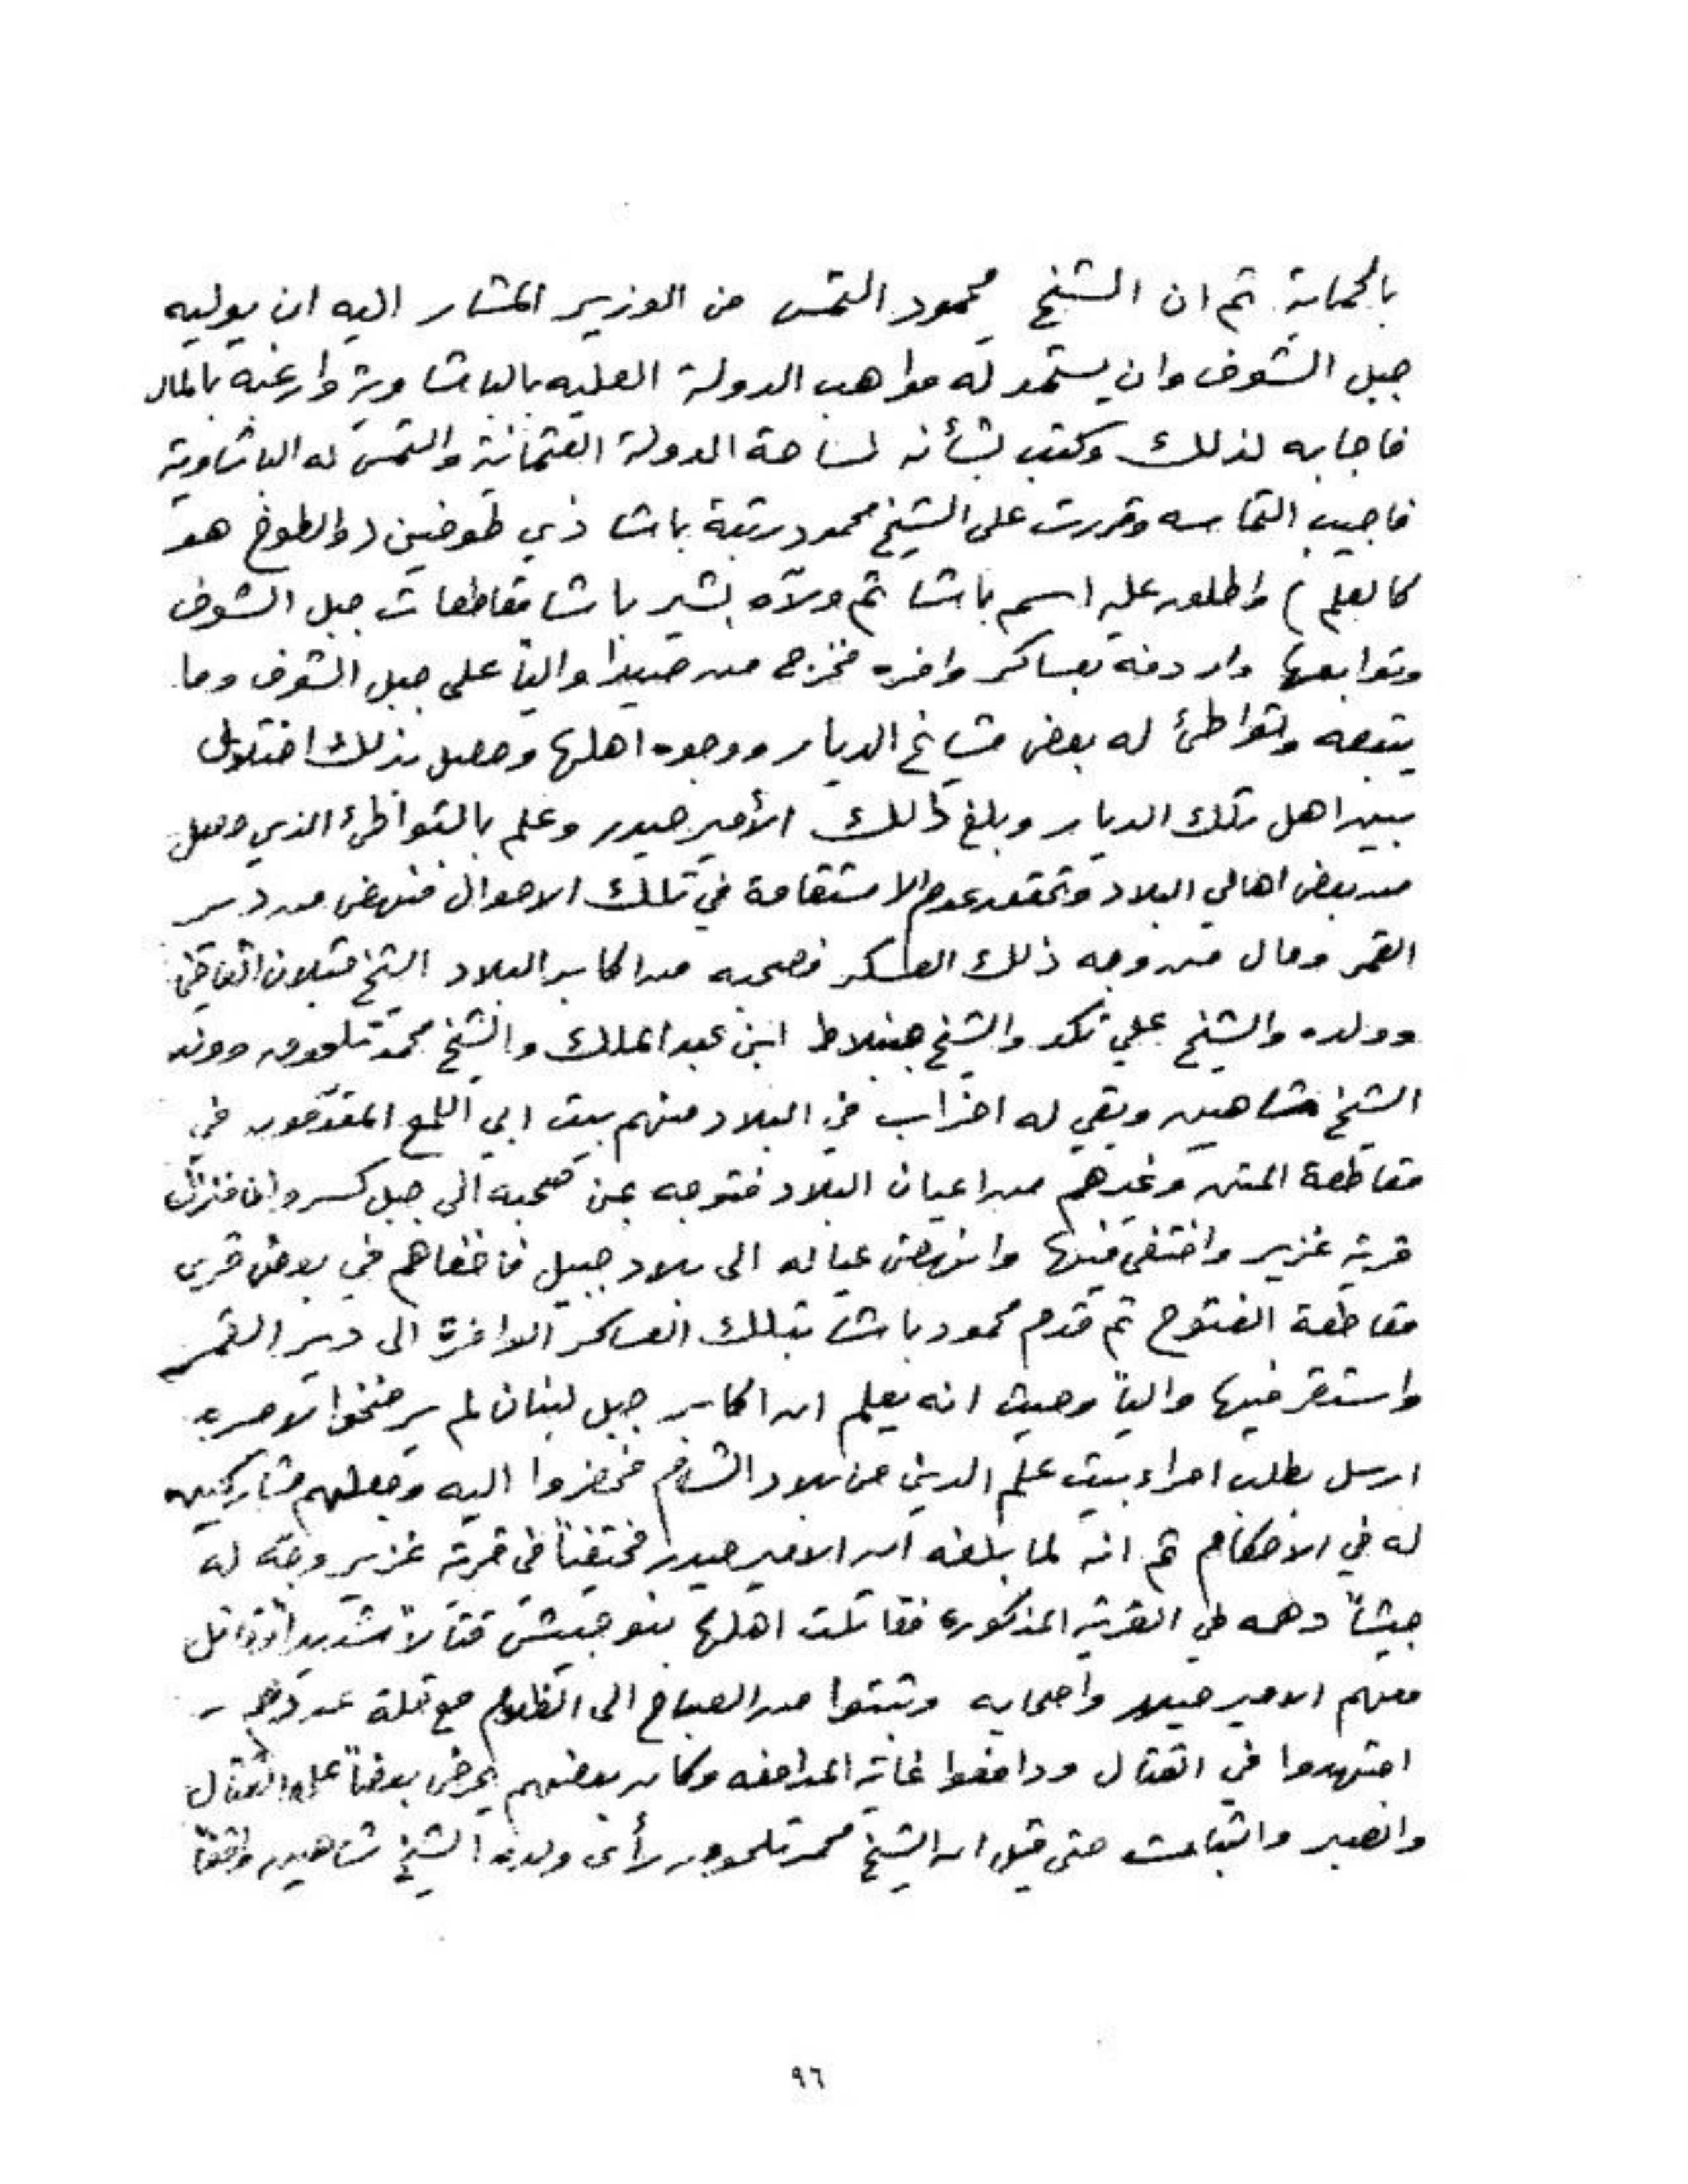 بالحماية ثم ان الشيخ محمود التمس من الوزير المشار اليه ان يوليه
جبل الشوف وان يستمد له مواهب الدولة العليه بالباشاوية وارغبه بالمال
فاجابه لذلك وكتب بشأنه لساحة الدولة العثمانية والتمس له الباشاوية
فاجيب التماسه وقررت على الشيخ محمود رتبة باشا ذي طوخين (والطوخ هو
كالعلم) واطلق عليه اسم باشا ثم ولاّه بشير باشا مقاطعات جبل الشوف
وتوابعها واردفه بعساكر وافره فخرج من صيدا والياً على جبل الشوف وما
يتبعه وتواطئ له بعض مشايخ الديار ووجوه اهلها وحصل بذلك اختلال
بين اهل تلك الديار وبلغ ذلك الأمير حيدر وعلم بالتواطئ الذي حصل
من بعض اهالي البلاد وتحقق عدم الاستقامة في تلك الاحوال فنهض من دير
القمر ومال من وجه ذلك العسكر فصحبه من اكابر البلاد الشيخ قبلان القاضي
وولده والشيخ علي نكد والشيخ جنبلاط ابن عبد الملك والشيخ محمد تلحوق وولده
الشيخ شاهين وبقي له احزاب في البلاد منهم بيت ابي اللمع المقدّمون في
مقاطعة المتن وغيرهم من اعيان البلاد فتوجه بمن صحبه الى جبل كسروان فنزل
قرية غزير واختفى فيها وانهض عياله الى بلاد جبيل فاخفاهم في بعض قرى
مقاطعة الفتوح ثم قدم محمود باشا بتلك العساكر الوافرة الى دير القمر
واستقر فيها والياً وحيث انه يعلم ان اكابر جبل لبنان لم يرضخوا لامره
ارسل يطلب امراء بيت علم الدين من بلاد الشام فحضروا اليه وجعلهم مشاركين
له في الاحكام ثم انه لما بلغه ان الامير حيدر مختفياً في قرية غزير وجّه له
جيشاً دهمه في القرية المذكوره فقاتلت اهلها بنو حبيش قتالاً شديداً وقاتل
معهم الامير حيدر واصحابه وثبتوا من الصباح الى الظلام مع قلة عددهم
اجتهدوا في القتال ودافعوا غاية المدافعه وكان بعضهم يحرض بعضاً على القتال
والصبر والثبات حتى قيل ان الشيخ محمد تلحوق رأى ولده الشيخ شاهين واقفاً
٩٦